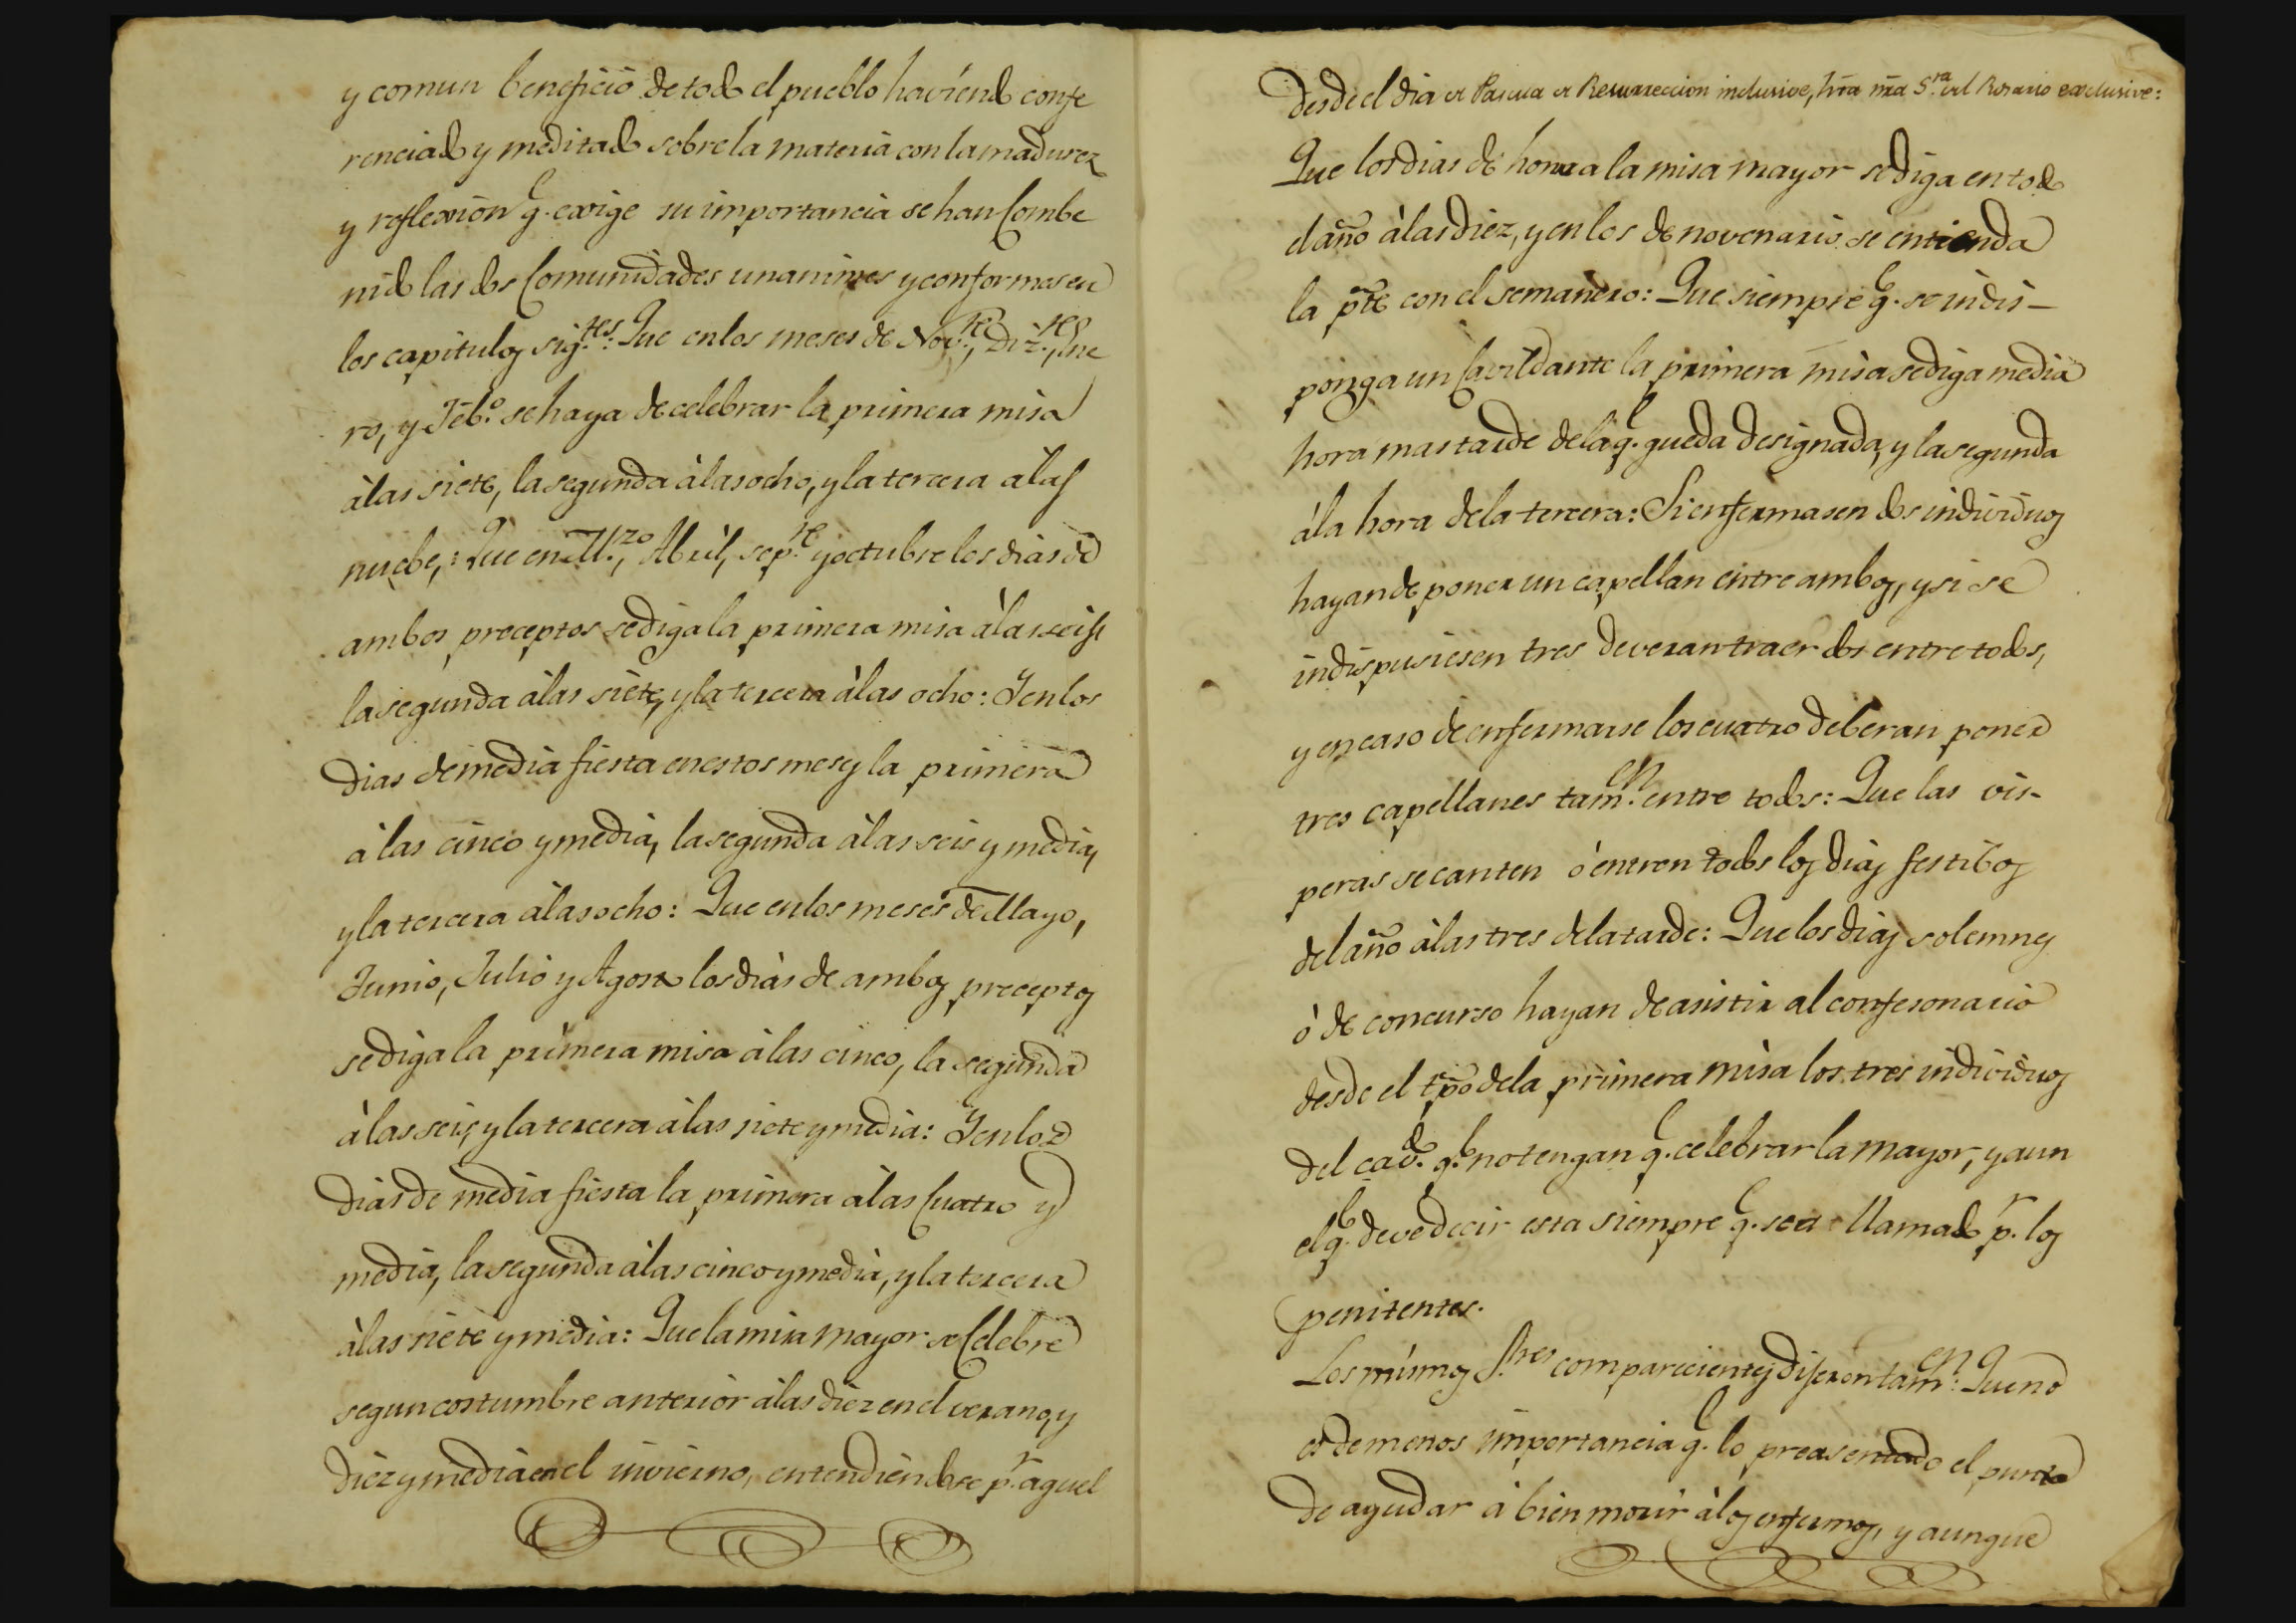 y comun beneficio de todo el pueblo haviendo confe
renciado y meditado sobre la materia con la madurez
y reflexion q.e exige su importancia se han Combe
nido las dos Comunidades unanimes y conformes en
los capitulos sig.tes: Que en los meses de Nov.re, Diz.re, Ene
ro, y Feb.o se haya de celebrar la primera misa
à las siete, la segunda à las ocho, y la tercera à las
nuebe,: Que en M.zo, Abril, sep.re y octubre los dias de
ambos preceptos se diga la primera misa à las seis,
la segunda à las siete, y la tercera à las ocho: Y en los
dias de media fiesta en estos meses la primera
à las cinco y media, la segunda à las seis y media,
y la tercera à las ocho: Que en los meses de Mayo,
Junio, Julio y Agosto los dias de ambos preceptos
se diga la primera misa à las cinco, la segunda
à las seis, y la tercera à las siete y media: Y en los
dias de media fiesta la primera à las Cuatro y
media, la segunda à las cinco y media, y la tercera
à las siete y media: Que la misa mayor se Celebre
segun costumbre anterior à las diez en el verano, y
diez y media en el invierno, entendiendose p.r aquel
desde el dia de Pascua de Resurreccion inclusive, hta nra S.ra del Rosario exclusive:
Que los dias de honra la misa mayor se diga en todo
el año à las diez, y en los de novenario se entienda
la pte con el semanero: Que siempre q.e se indis-
ponga un Cavildante la primera misa se diga media
hora mas tarde de la q.e queda designada, y la segunda
à la hora de la tercera: Si enfermasen dos individuos
hayan de poner un capellan entre ambos, y si se
indispusiesen tres deveran traer dos entre todos,
y en caso de enfermarse los cuatro deberan poner
tres capellanes tam.en entre todos: Que las vis-
peras se canten ò entren todos los dias festibos
del año à las tres de la tarde: Que los dias solemnes
ò de concurso hayan de asistir al confesonario
desde el tpo de la primera misa los tres individuos
del cav.do q.e no tengan q.e celebrar la mayor, y aun
el q.e deve decir esta siempre q.e sea llamado p.r los
penitentes.
Los mismos S.res comparecientes dijeron tam.en: Que no
es de menos importancia q.e lo preasentado el punto
de ayudar à bien morir à los enfermos, y aunque